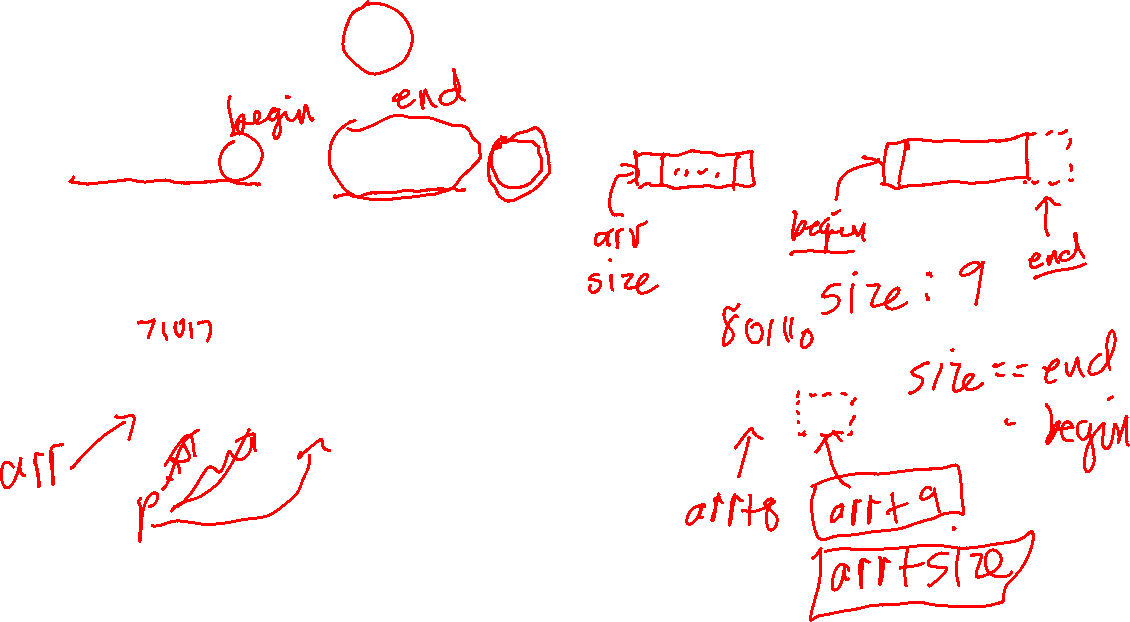 begin
end
arr
size
begin
end
size: 9
size == end
- begin
arr
p
arr+8
arr+9
arr+size